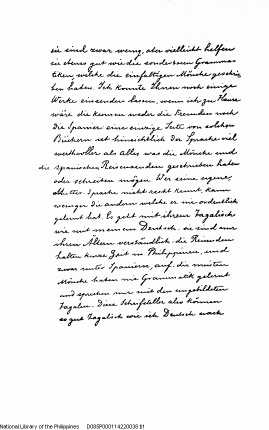 sie sind zwar wenig, aber vielleicht helfen
sie ebenso gut wie die sonderbaren Gramma-
tiken welche die einfältigen Mönche geschrie-
ben haben. Ich konnte Ihnen noch einige
Werke einsenden lassen, wenn ich zu Hause
wäre die können weder die Fremden noch
die Spanier eine einzige Seite von solchen
Büchern ist hinsichtlich der Sprache viel
werthvoller als Alles was die Mönche und
die spanischen Reisenden geschrieben haben
oder schreiben mögen. Wer seine eigene,
Sprache nicht recht kennt, kann
weniger die andern welche er nie ordentlich
gelernt hat. Es geht mit ihrem Tagalisch
wie mit meinem Deutsch: sie sind nur
ihren Ältern verständlich. Die Fremden
halten kurze Zeit in Philippinen, und
zwar unter Spaniern, auf die meisten
Mönche haben nie Grammatik gelernt
und sprechen nur mit den ungebildeten
Tagalen. Diese Schriftsteller also können
so gut Tagalisch wie ich Deutsch
National Library of the Philippines D00SP000114220038.tif